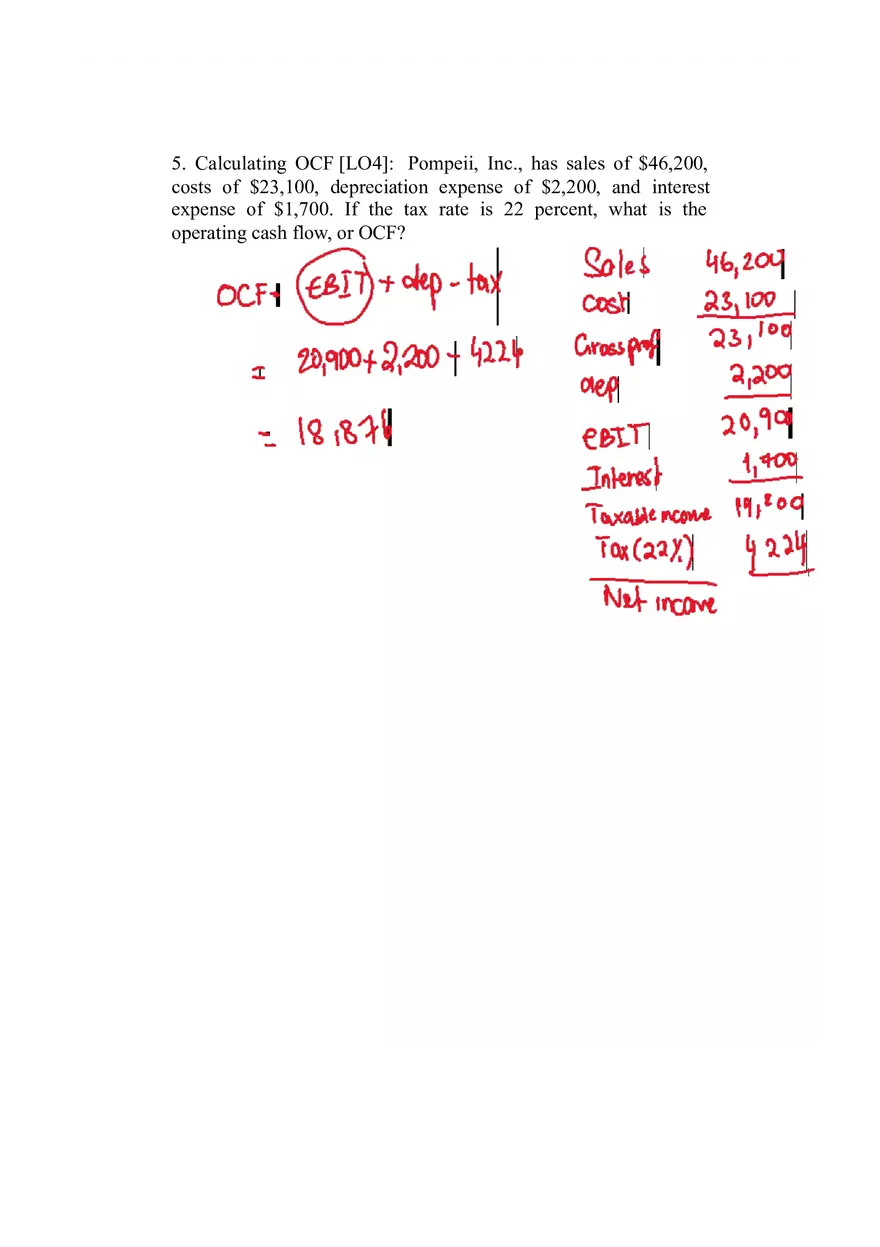 5. Calculating OCF [LO4]: Pompeii, Inc., has sales of $46,200,
costs of $23,100, depreciation expense of $2,200, and interest
expense of $1,700. If the tax rate is 22 percent, what is the
operating cash flow, or OCF?
OCF = EBIT + dep - tax
= 20,900 + 2,200 - 4224
= 18,876
Sales 46,200
Cost 23,100
Gross prof 23,100
dep 2,200
EBIT 20,90
Interest 1,700
Taxable income 19,200
Tax (22%) 4224
Net income